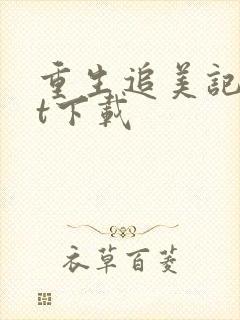 重生追美記
t下載
衣草百菱